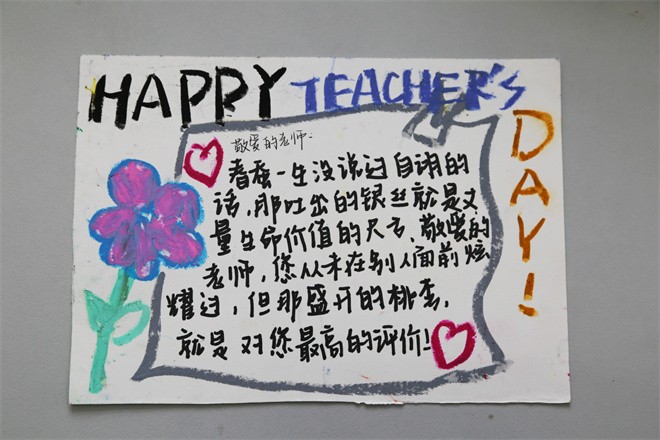 HAPPY TEACHER'S
DAY!
敬爱的老师：
春蚕一生没说过自诩的
话，那吐出的银丝就是丈
量生命价值的尺子、敬爱的
老师，您从未在别人面前炫
耀过，但那盛开的桃李，
就是对您最高的评价！